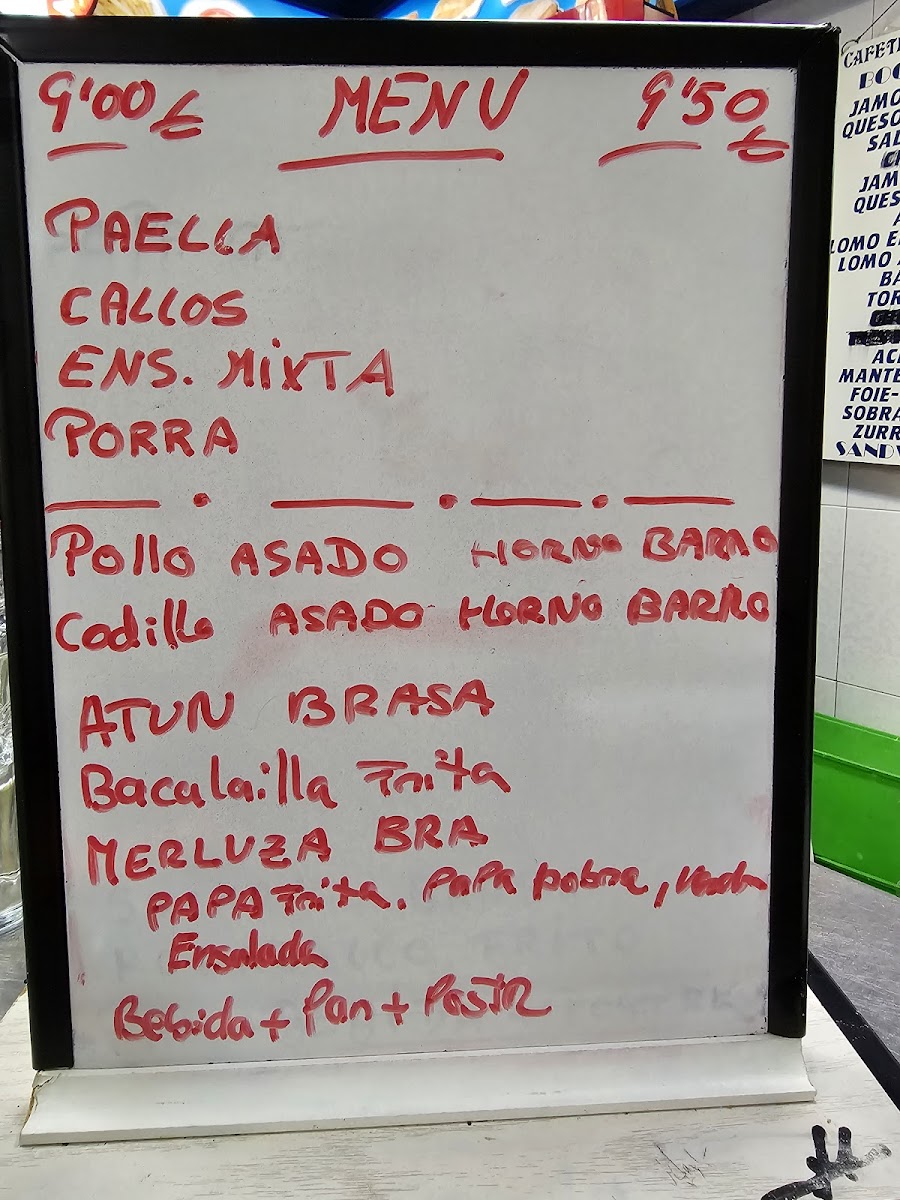 9'00 € MENU 9'50 €
PAELLA
CALLOS
ENS. MIXTA
PORRA
Pollo ASADO HORNO BARRO
Codillo ASADO HORNO BARRO
ATUN BRASA
Bacalailla Frita
MERLUZA BRA
PAPA Frita, PAPA pobre,
Ensalada
Bebida + Pan + PostR
CAFETE
BOC
JAMO
QUESO
SAL
JAM
QUES
A
LOMO E
LOMO A
BA
TOR
ACE
MANTE
FOIE-
SOBRA
ZURR
SANDW